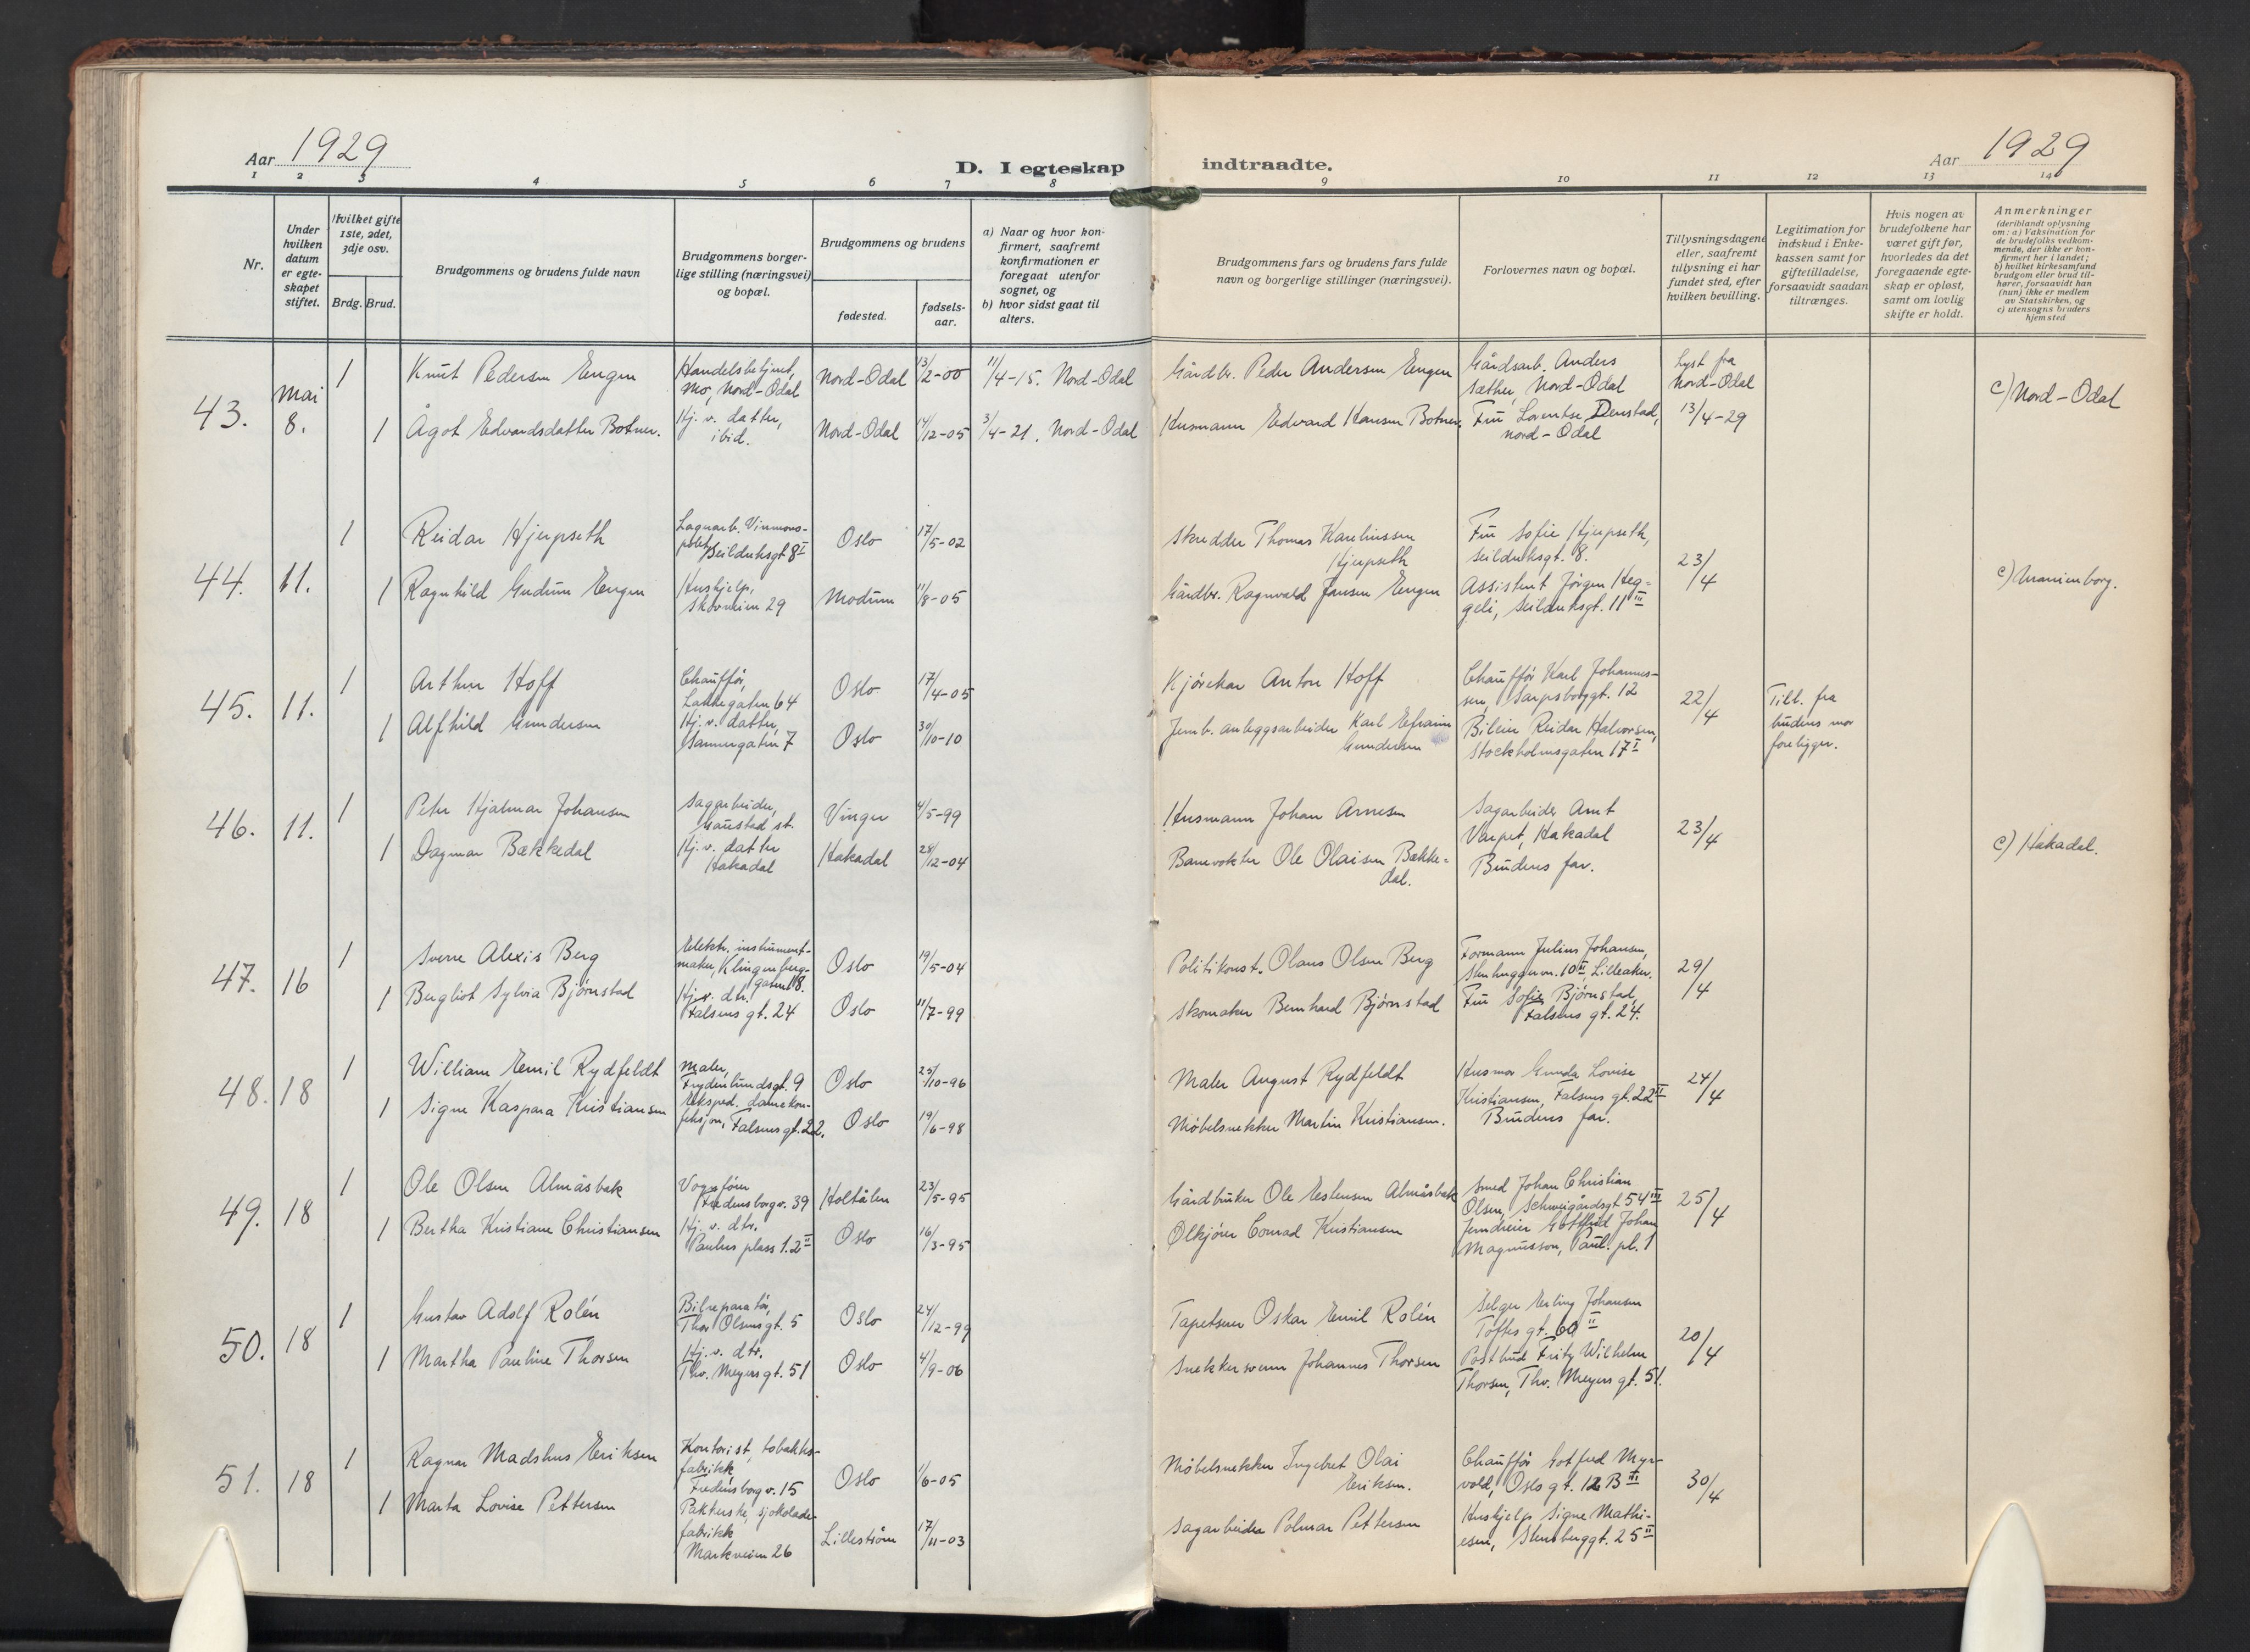 Aar 1929
D. I egteskap indtraadte.
Aar 1929
1 2 3 4 5 6 7 8 9 10 11 12 13 14
Nr.
Under
hvilken
datum
er egte-
skapet
stiftet.
Hvilket gifte
1ste, 2det,
3dje osv.
Brdg. Brud.
Brudgommens og brudens fulde navn
Brudgommens borger-
lige stilling (næringsvei)
og bopæl.
Brudgommens og brudens
fødested.
fødsels-
aar.
a) Naar og hvor kon-
firmert, saafremt
konfirmationen er
foregaat utenfor
sognet, og
b) hvor sidst gaat til
alters.
Brudgommens fars og brudens fars fulde
navn og borgerlige stillinger (næringsvei).
Forlovernes navn og bopæl.
Tillysningsdagene
eller, saafremt
tillysning ei har
fundet sted, efter
hvilken bevilling.
Legitimation for
indskud i Enke-
kassen samt for
giftetilladelse,
forsaavidt saadan
tiltrænges.
Hvis nogen av
brudefolkene har
været gift før,
hvorledes da det
foregaaende egte-
skap er opløst,
samt om lovlig
skifte er holdt.
Anmerkninger
(deriblandt oplysning
om: a) Vaksination for
de brudefolks vedkom-
mende, der ikke er kon-
firmert her i landet;
b) hvilket kirkesamfund
brudgom eller brud til-
hører, forsaavidt han
(hun) ikke er medlem
av Statskirken, og
c) utensogns bruders
hjemsted
43. Mai 8.
1 Knut Pedersen Engen
Handelsbetjent,
Mo, Nord-Odal
Nord-Odal 13/2-00 11/4-15. Nord-Odal
Gårdbr. Peder Andersen Engen
Gårdsarb. Anders
Sæther, Nord-Odal
Lyst fra
Nord-Odal
13/4-29
c) Nord-Odal
1 Ågot Edvardsdatter Botner.
Hj. v. datter,
ibid.
Nord-Odal 14/12-05 3/4-21. Nord-Odal
Husmann Edvard Hansen Botner.
Fru Lorentse Denstad,
Nord-Odal
44. 11.
1 Reidar Hjerpseth
Lagerarb. Vinmono-
polet, Seilduksgt 8 I
Oslo 17/5-02
Skredder Thomas Karelinssen
Hjerpseth
Fru Sofie Hjerpseth,
Seilduksgt. 8.
23/4
c) Uranienborg.
1 Ragnhild Gudrun Engen
Hushjelp,
Skovveien 29
Modum 11/8-05
Gårdbr. Ragnvald Jansen Engen
Assistent Jørgen Heg-
geli, Seilduksgt. 11 III
45. 11.
1 Arthur Hoff
Chauffør,
Lakkegaten 64
Oslo 17/4-05
Kjørekar Anton Hoff
Chauffør Karl Johannes-
sen, Sarpsborggt. 12
22/4
Till. fra
brudens mor
foreligger.
1 Alfhild Gundersen
Hj. v. datter,
Sannergaten 7
Oslo 30/10-10
Jernb. anleggsarbeider Karl Efraim
Gundersen
Bileier Reidar Halvorsen,
Stockholmsgaten 17 I
46. 11.
1 Peter Hjalmar Johansen
Sagarbeider,
Gaustad st.
Vinger 4/5-99
Husmann Johan Arnesen
Sagarbeider Arnt
Varpet, Hakadal
23/4
c) Hakadal.
1 Dagmar Bækkedal
Hj. v. datter
Hakadal
Hakadal 28/12-04
Banevokter Ole Olaisen Bække-
dal.
Brudens far.
47. 16
1 Sverre Alexis Berg
Elektr. instrument-
maker, Klingenberg-
gaten 8.
Oslo 19/5-04
Politikonst. Olaus Olsen Berg
Formann Julius Johansen,
Stenhuggervn. 10 II, Lilleaker.
29/4
1 Bergliot Sylvia Bjørnstad
Hj. v. dtr.
Falsens gt. 24
Oslo 11/7-99
Skomaker Bernhard Bjørnstad
Fru Sofie Bjørnstad,
Falsens gt. 24.
48. 18
1 William Emil Rydfeldt
Maler,
Frydenlundsgt. 9
Oslo 25/10-96
Maler August Rydfeldt
Husmor Gunda Lovise
Kristiansen, Falsens gt. 22 II
24/4
1 Signe Kaspara Kristiansen
Eksped. damekon-
feksjon, Falsens gt. 22.
Oslo 19/6-98
Møbelsnekker Martin Kristiansen.
Brudens far.
49. 18
1 Ole Olsen Almåsbak
Vognfører
Fredensborgv. 39
Holtålen 23/5-95
Gårdbruker Ole Estensen Almåsbak
Smed Johan Christian
Olsen, Schweigårdsgt 54 III
25/4
1 Bertha Kristiane Christiansen
Hj. v. dtr.
Paulus plass 1. 2 II
Oslo 16/3-95
Ølkjører Conrad Kristiansen
Jerndreier Gottfrid Johan
Magnusson, Paul. pl. 1
50. 18
1 Gustav Adolf Rolén
Bilreparatør,
Thor Olsens gt. 5
Oslo 24/12-99
Tapetserer Oskar Emil Rolén
Selger Erling Johansen
Toftes gt. 60 II
20/4
1 Martha Pauline Thorsen
Hj. v. dtr.
Thv. Meyers gt. 51
Oslo 4/9-06
Snekkersvenn Johannes Thorsen
Postbud Fritz Wilhelm
Thorsen, Thv. Meyers gt. 51.
51. 18
1 Ragnar Madshus Eriksen
Kontorist, tobakks-
fabrikk
Fredensborgv. 15
Oslo 1/6-05
Møbelsnekker Ingebret Olai
Eriksen.
Chauffør Gotfred Myr-
vold, Oslo gt. 12 B III
30/4
1 Marta Lovise Pettersen
Pakkerske, sjokolade-
fabrikk
Markveien 26
Lillestrøm 17/11-03
Sagarbeider Polmar Pettersen
Hushjelp Signe Mathi-
esen, Stensberggt. 25 II